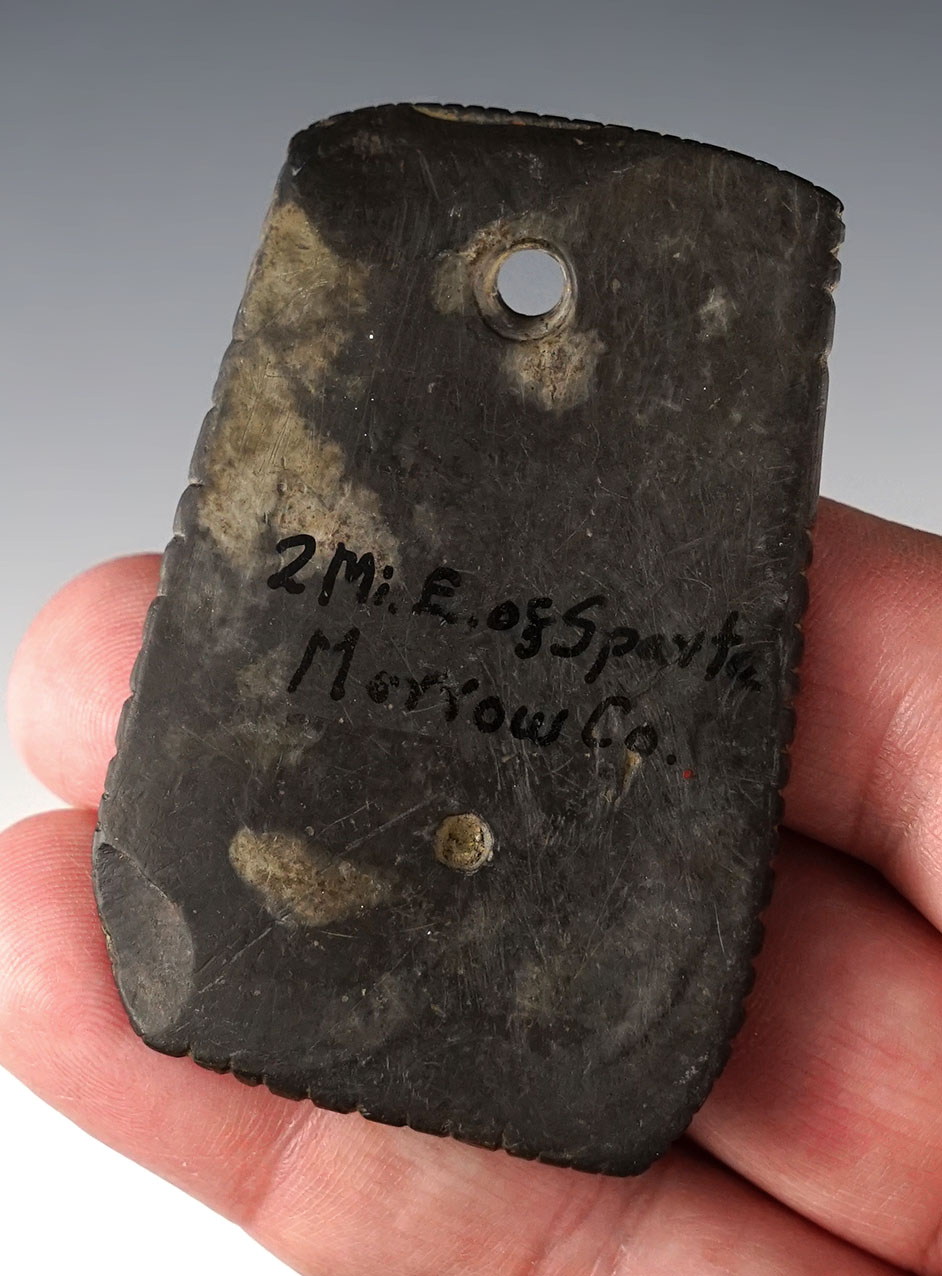 2 Mi. E. of Sparta
Morrow Co.